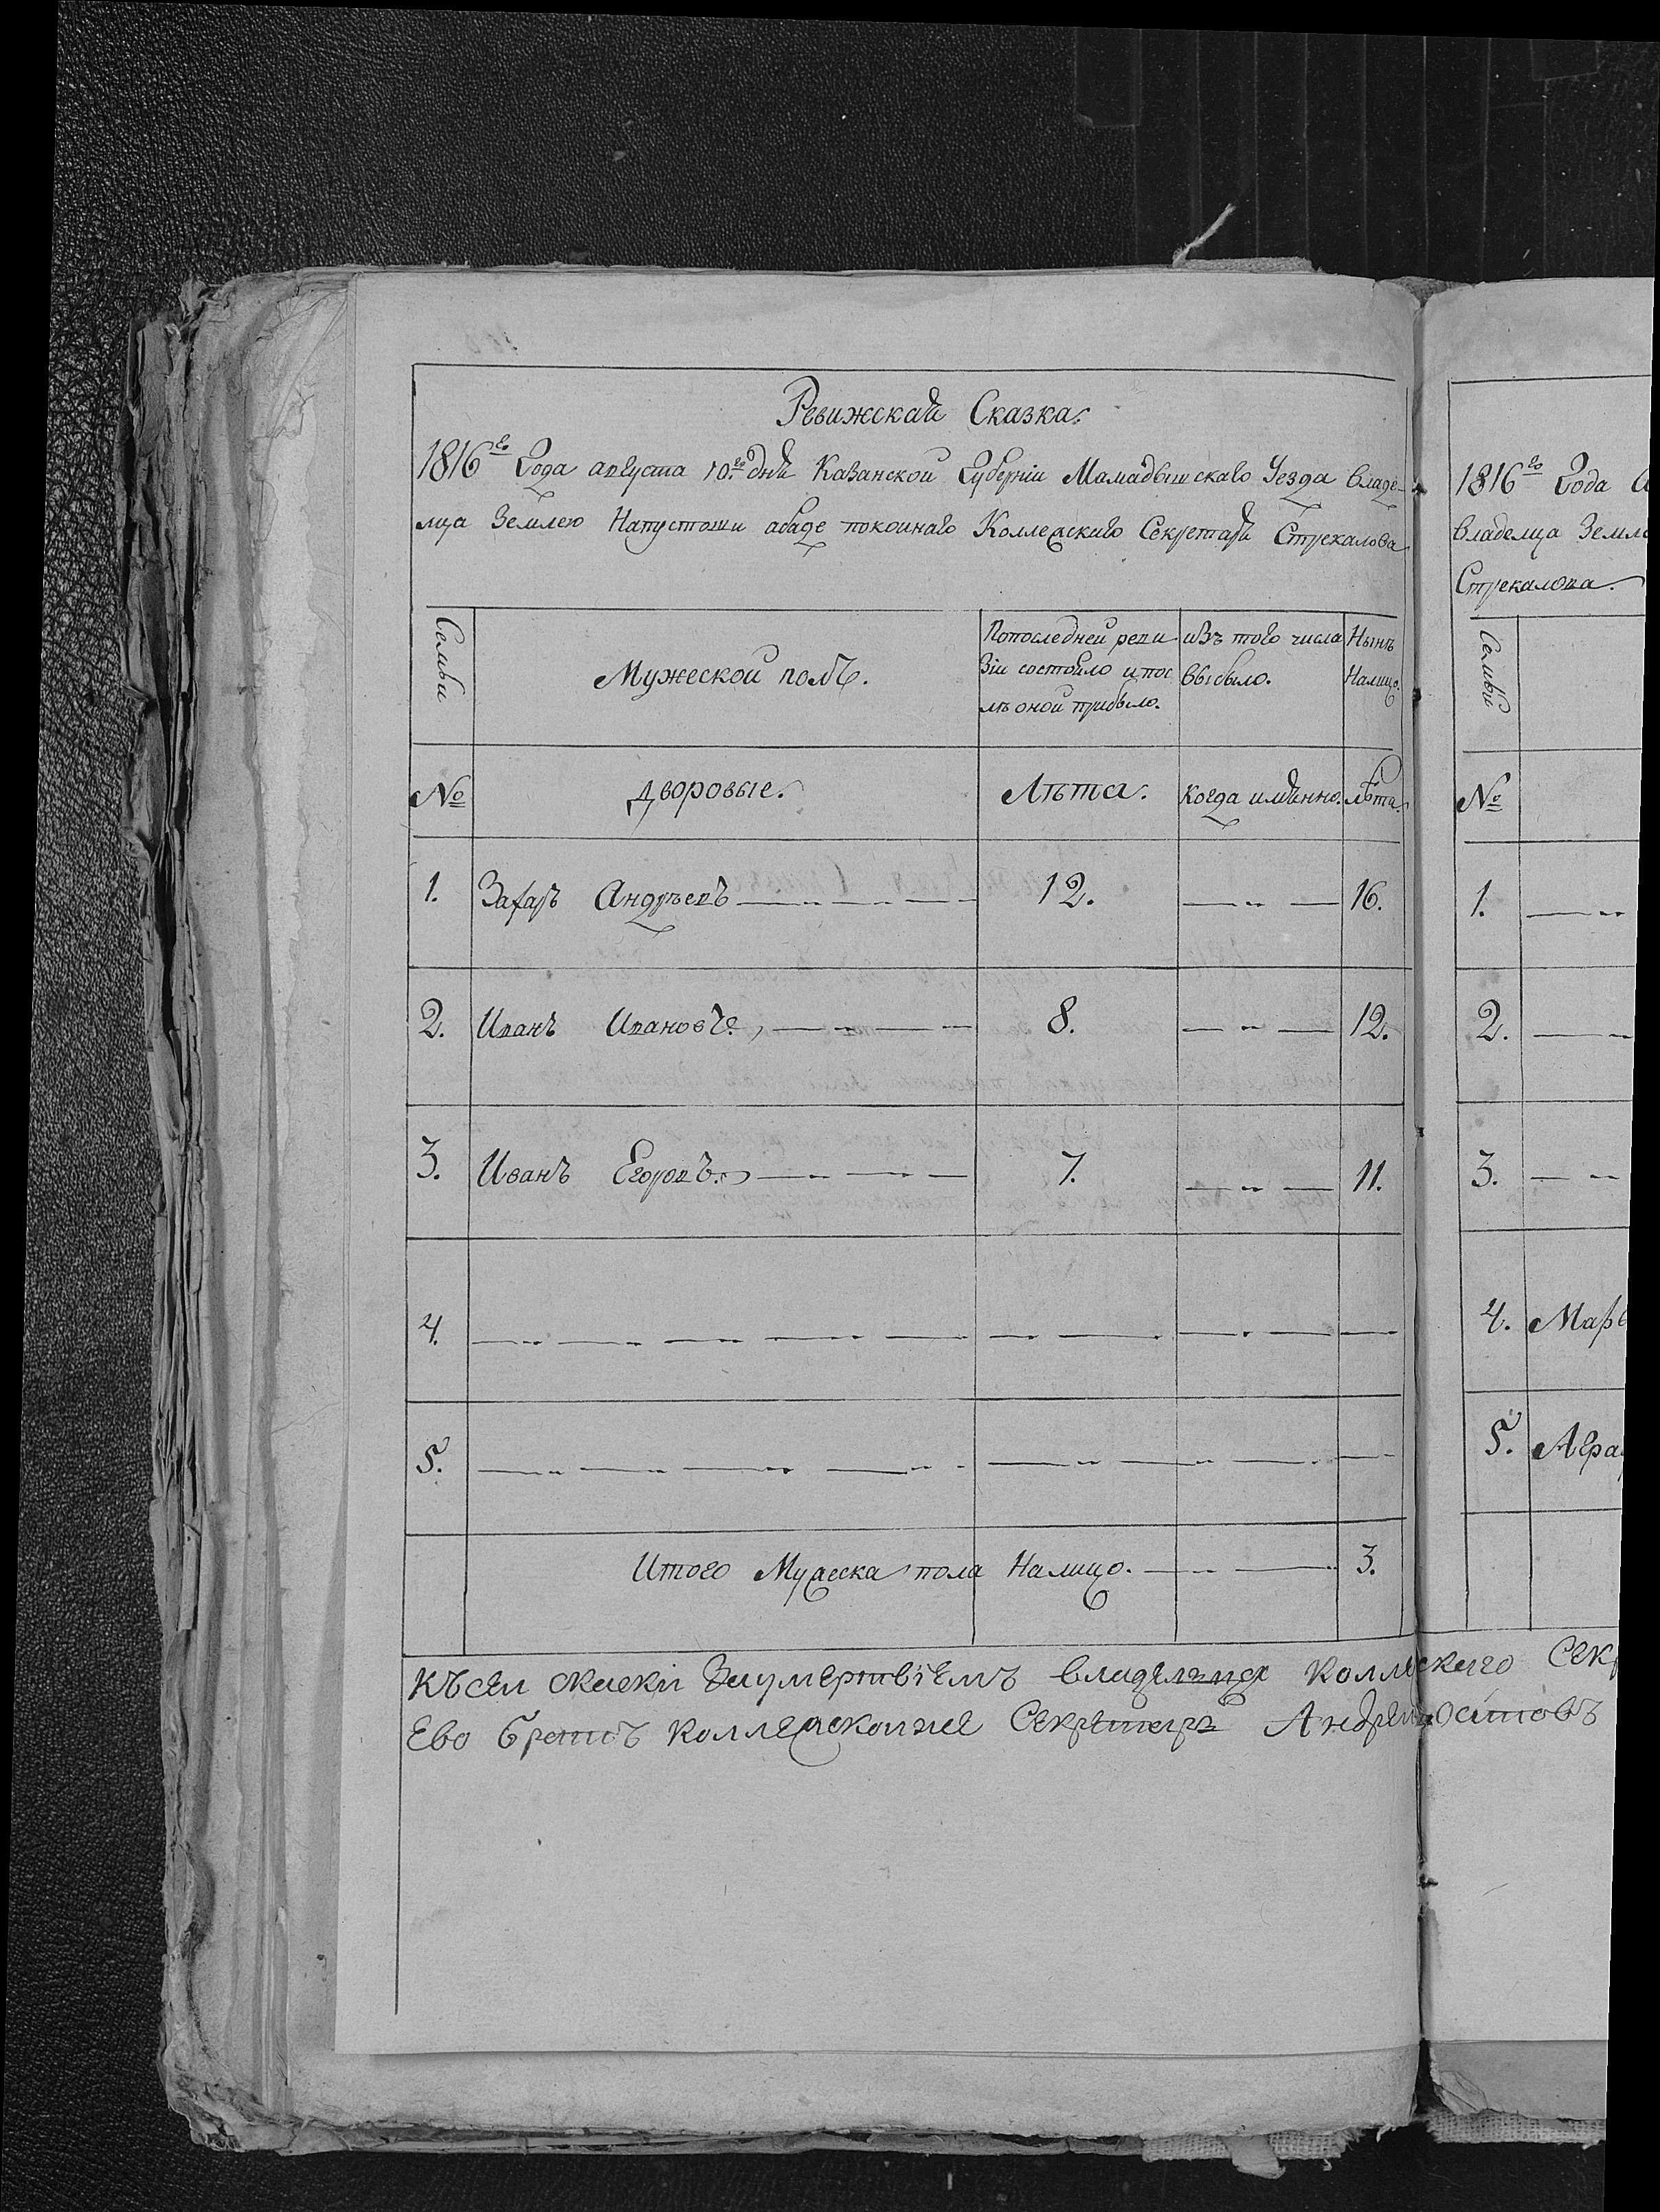 Ревижская Сказка.
1816го Года августа 10го дня Казанской Губерніи Мамадышскаго Уезда Владе-
лца Землею Напустоши абаде покоинаго Коллежскаго Секретаря Стрекалова
Семьи
Мужеской полъ.
Попоследней реви
зіи состояло ипос
лѣ оной прибыло.
изъ того числа
выбыло.
Нынѣ
Налицо.
№
Дворовые.
Лѣта.
Когда имянно.
лѣта.
1. Захаръ Андрѣевъ 12. 16.
2. Иванъ Ивановъ. 8. 12.
3. Иванъ Егоровъ. 7. 11.
4.
5.
Итого Мужеска пола Налицо. 3.
Къ сеи скаски Заумертвіемъ владелца Коллескаго Секр
Ево братъ коллежскои Секретарь Андреи
1816го Года а
Владелца Земле
Стрекалова.
Семьи
№
1.
2.
3.
4. Марь
5. Агра